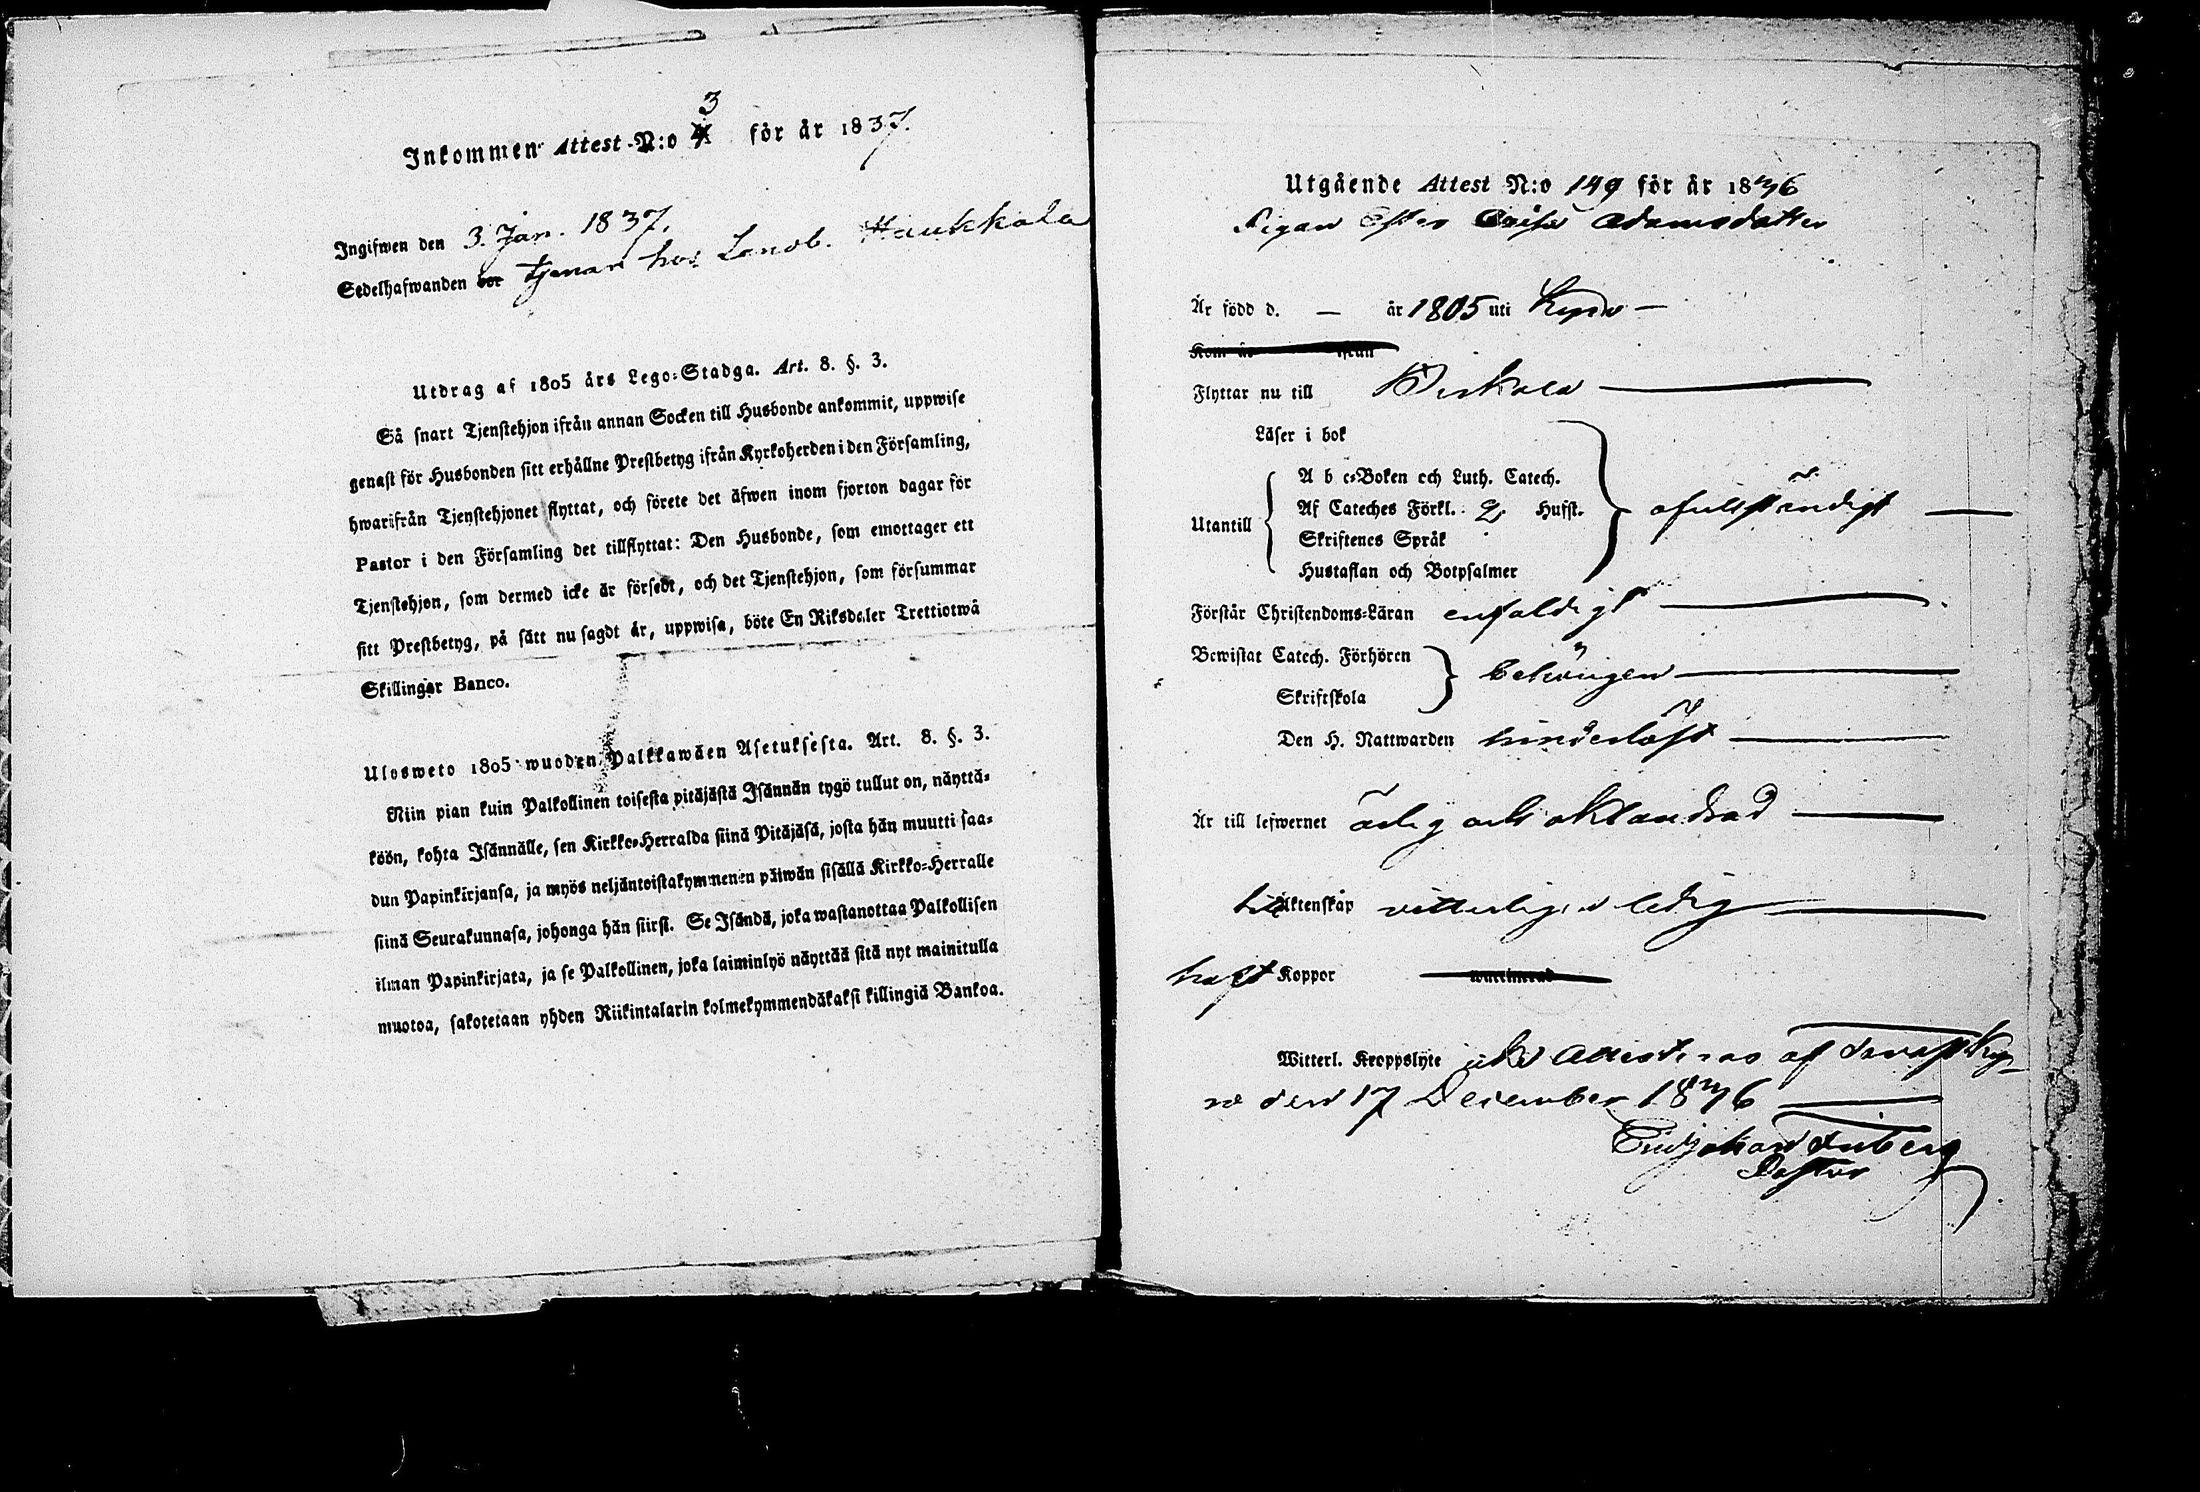 Inkommen Attest N:o 3 för år 1837.
Ingifwen den 3. Jan. 1837.
Sedelhafwanden bor tjenar hos Landb. Haukkala
Utdrag af 1805 års Lego-Stadga. Art. 8. §. 3.
Så snart Tjenstehjon ifrån annan Socken till Husbonde ankommit, uppwise
genast för Husbonden sitt erhållne Prestbetyg ifrån Kyrkoherden i den Församling,
hwarifrån Tjenstehjonet flyttat, och förete det äfwen inom fjorton dagar för
Pastor i den Församling det tillflyttat: Den Husbonde, som emottager ett
Tjenstehjon, som dermed icke är försedt, och det Tjenstehjon, som försummar
sitt Prestbetyg, på sätt nu sagdt är, uppwisa, böte En Riksdaler Trettiotwå
Skillingar Banco.
Ulosweto 1805 wuoden Palkkawäen Asetuksesta. Art. 8. §. 3.
Niin pian kuin Palkollinen toisesta pitäjästä Isännän tygö tullut on, näyttä-
köön, kohta Isännälle, sen Kirkko-Herralda siinä Pitäjäsä, josta hän muutti saa-
dun Papinkirjansa, ja myös neljäntoistakymmenen päiwän sisällä Kirkko-Herralle
siinä Seurakunnasa, johonga hän siirsi. Se Isändä, joka wastanottaa Palkollisen
ilman Papinkirjata, ja se Palkollinen, joka laiminlyö näyttää sitä nyt mainitulla
muotoa, sakotetaan yhden Riikintalarin kolmekymmendäkaksi killingiä Bankoa.
Utgående Attest N:o 149 för år 1836
Pigan Adamsdotter
Är född d. — år 1805 uti Kyro —
Kom år ifrån
Flyttar nu till Birkala
Läser i bok
A b c-Boken och Luth. Catech.
Af Cateches Förkl. 2 Hufst.
Utantill
ofullständigt
Skriftenes Språk
Hustaflan och Botpsalmer
Förstår Christendoms-Läran enfaldigt
Bewistat Catech. Förhören
behörigen
Skriftskola
Den H. Nattwarden hinderlöst
Är till lefwernet ärlig och oklandrad
till Äktenskap witterligen ledig
haft Koppor waccinerad
Witterl. Kroppslyte icke Attesteras af Kyr-
ro den 17 December 1836
Pastor